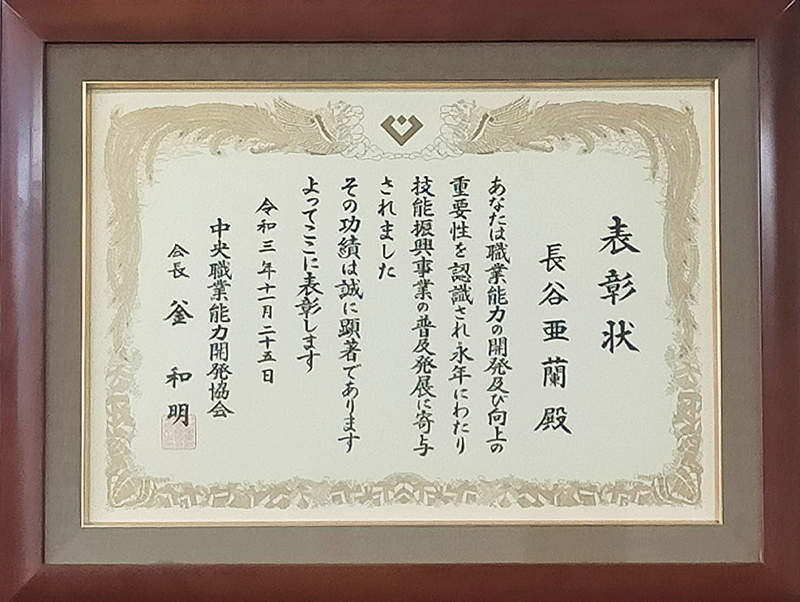 表彰状
長谷亜蘭殿
あなたは職業能力の開発及び向上の
重要性を認識され永年にわたり
技能振興事業の普及発展に寄与
されました
その功績は誠に顕著であります
よってここに表彰します
令和三年十一月二十五日
中央職業能力開発協会
会長 釜 和明